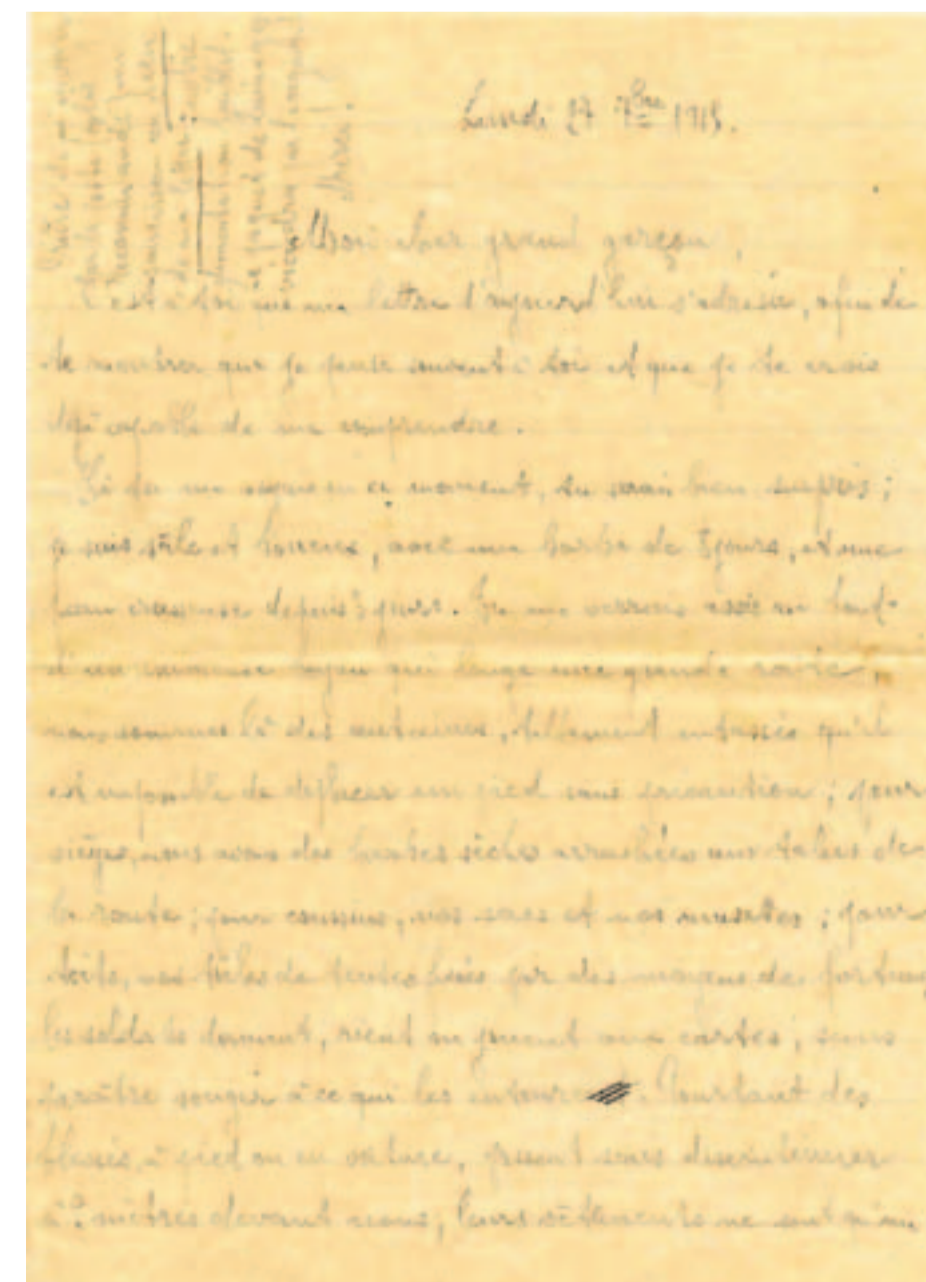 Lundi 27 7bre 1915.
Mon cher grand garçon,
C'est à toi que ma lettre d'aujourd'hui s'adresse, afin de
te montrer que je pense souvent à toi et que je te crois
déjà capable de me comprendre.
Si tu me voyais en ce moment, tu serais bien surpris ;
je suis sale et boueux, avec une barbe de 8 jours, et une
peau crasseuse depuis jours. Tu me verrais assis au bord
d'un immense boyau qui longe une grande route ;
nous sommes là des centaines, tellement entassés qu'il
est impossible de déplacer un pied sans précaution ; pour
sièges, nous avons des herbes sèches arrachées aux talus de
la route ; pour coussins, nos sacs et nos musettes ; pour
toits, nos toiles de tentes par des moyens de fortune,
les soldats dorment, rient ou jouent aux cartes ; sans
paraître songer à ce qui les entoure. Pourtant des
blessés, à pied ou en voiture, passent sans discontinuer
à 2 mètres devant nous, leurs vêtements ne sont qu'un
Prière de
recommandé
de ma lettre
le paquet de lainages
viendra
Merci !